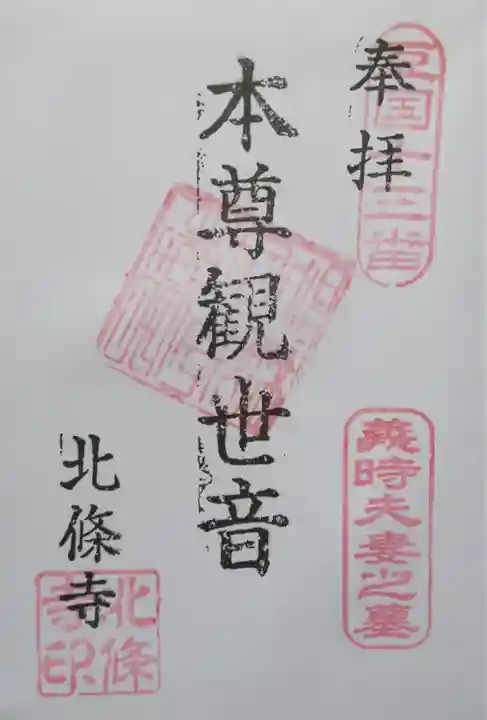 奉拝
豆国十三番
本尊観世音
義時夫妻之墓
北條寺
北條寺印